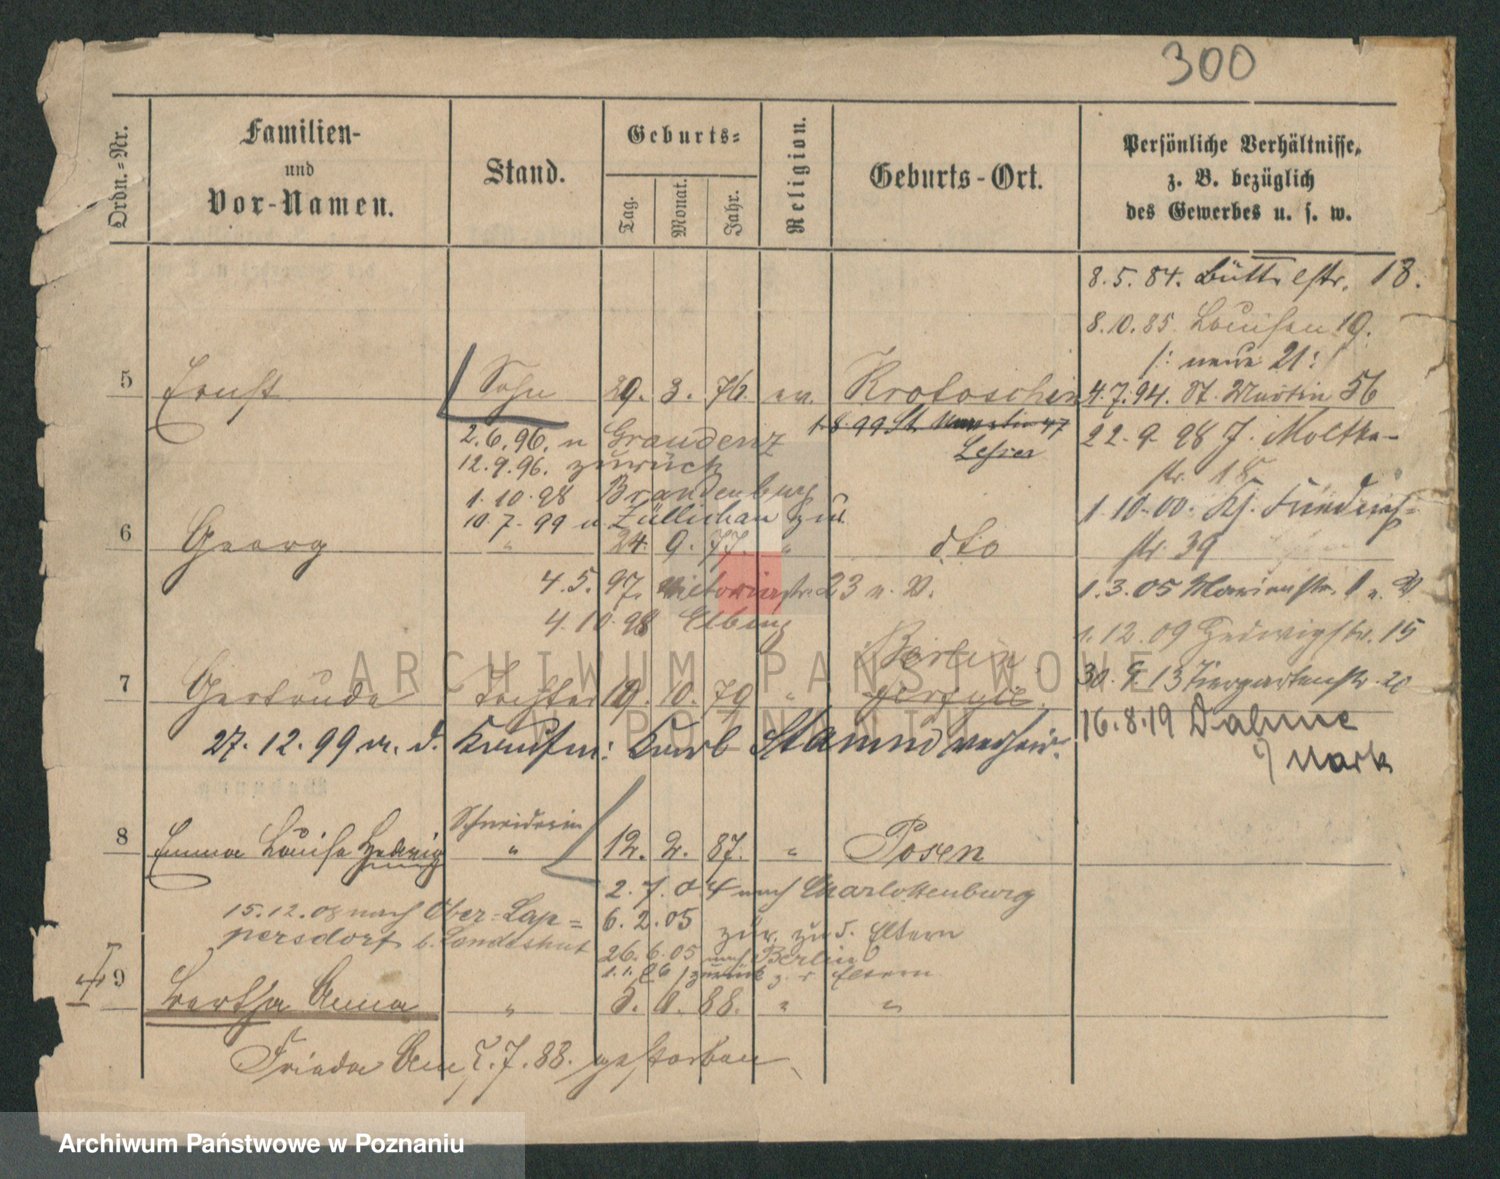 300
Ordn.=Nr.
Familien-
und
Vor-Namen.
Stand.
Geburts=
Tag.
Monat.
Jahr.
Religion.
Geburts-Ort.
Persönliche Verhältnisse,
z. B. bezüglich
des Gewerbes u. s. w.
8.5.84. Büttelstr. 18.
8.10.85. Louisen 19.
/: neue 21:/
5 Ernst Sohn 29. 3. 76. ev. Krotoschin
4.7.94. St. Martin 56
1.8.99 St. Martin 47
Lehrer
2.6.96. n Graudenz
12.9.96. zurück
1.10.98 Brandenburg
10.7.99 v. Züllichau zur.
22.9.98 J. Moltke-
str. 18
1.10.00. Kf. Friedrich-
str. 39
6 Georg " 24. 9. 77. " dto
4.5.97. Victoriastr. 23 v. V.
4.10.98 Elbing
1.3.05 Marienstr. 1 v. V.
1.12.09 Hedwigstr. 15
30.9.13 Tiergartenstr. 20
16.8.19 Dahme
Mark
Berlin
7 Gertrude Tochter 19. 10. 79 "
27.12.99 m. d. Kaufm: Kurt Stamm verheir.
Schneiderin
8 Emma Louise Hedwig " 12. 2. 87. " Posen
2.7.04 nach Charlottenburg
6.2.05 zur. zu d. Eltern
15.12.08 nach Ober-Lap=
persdorf b. Landeshut
26.6.05 nach Berlin
1.1.06 zurück z. d. Eltern
9 Bertha Anna " 88. " "
Frieda Am 7.7.88. gestorben
ARCHIWUM PAŃSTWOWE
W POZNANIU
Archiwum Państwowe w Poznaniu